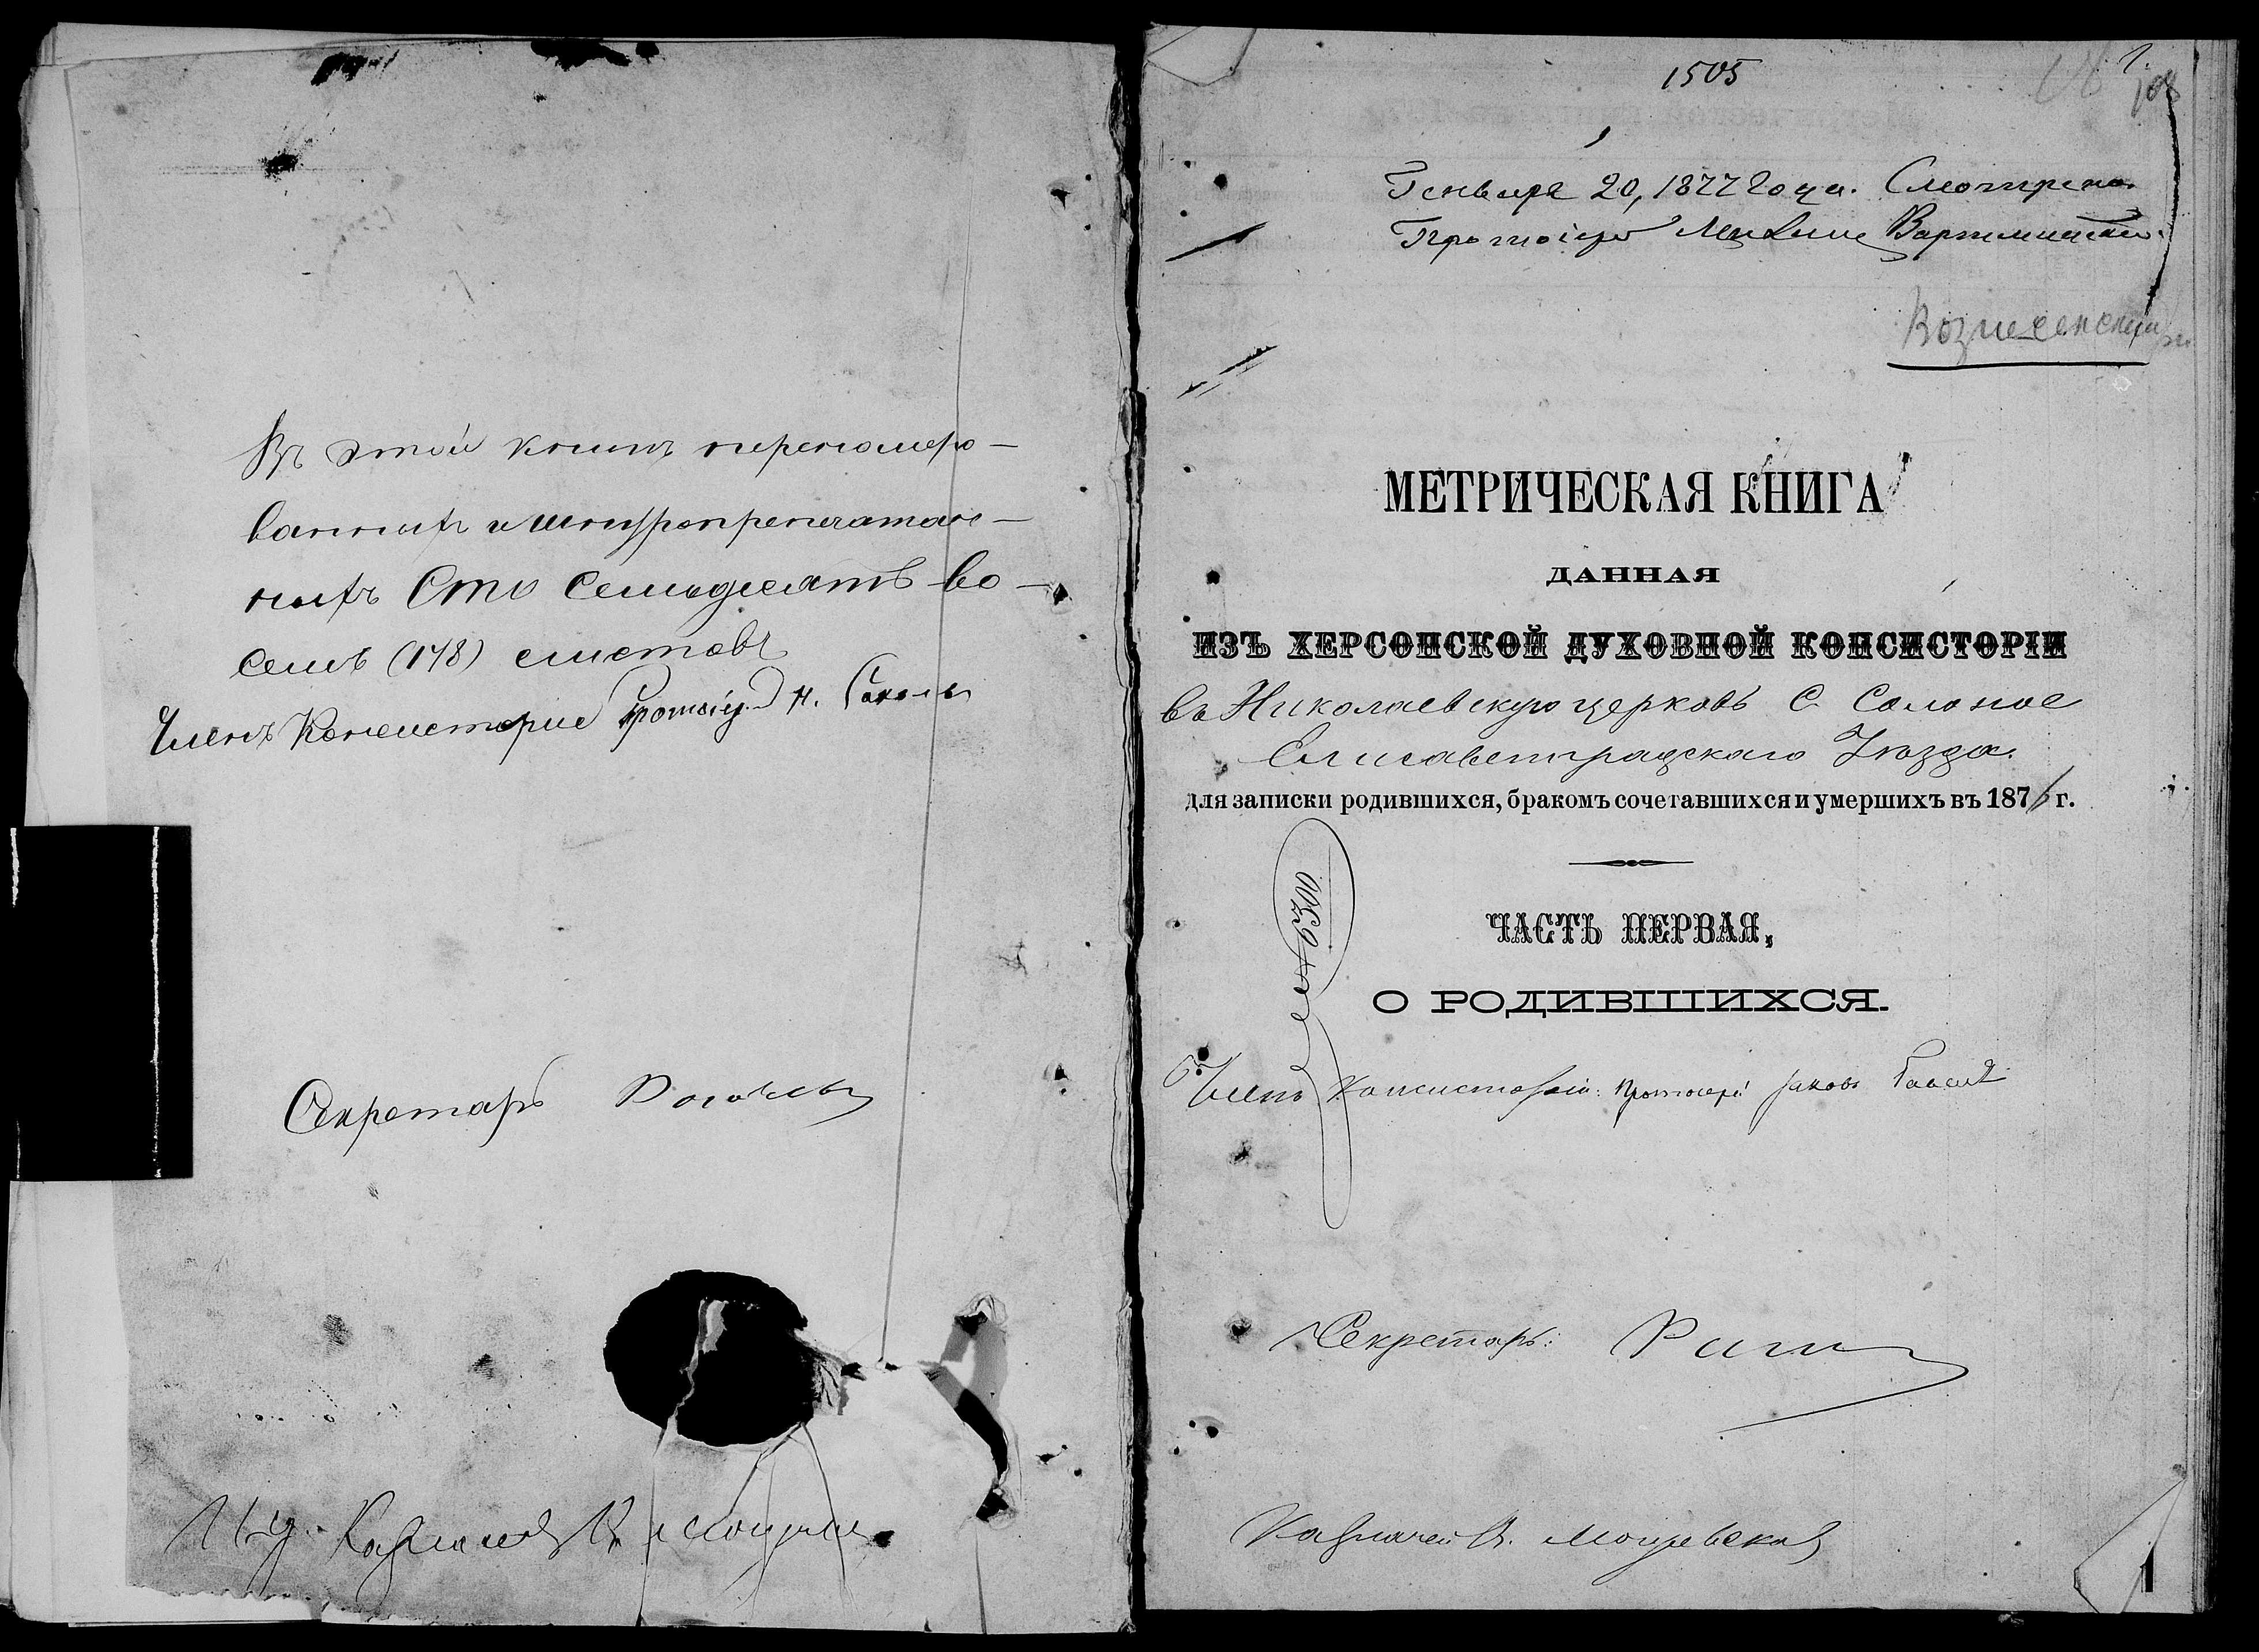 Въ этой книгѣ перенумеро-
ванныхъ и шнуропрепечатан-
ныхъ Сто Семьдесятъ во-
семь (178) листовъ
Членъ Консисторіи Протоіер.
Секретарь
1505
1.
108
Генваря 20, 1877 Года. Смотрено.
Протоіер
Вознесенск
МЕТРИЧЕСКАЯ КНИГА
ДАННАЯ
ИЗЪ ХЕРСОНСКОЙ ДУХОВНОЙ КОНСИСТОРІИ
въ Николаевскую церковь С. Солоное
Елисаветградскаго Уѣзда.
для записки родившихся, бракомъ сочетавшихся и умершихъ въ 1876 г.
ЧАСТЬ ПЕРВАЯ,
О РОДИВШИХСЯ.
Членъ Консисторіи: Протоіерей Іаковъ
Секретарь:
Казначей